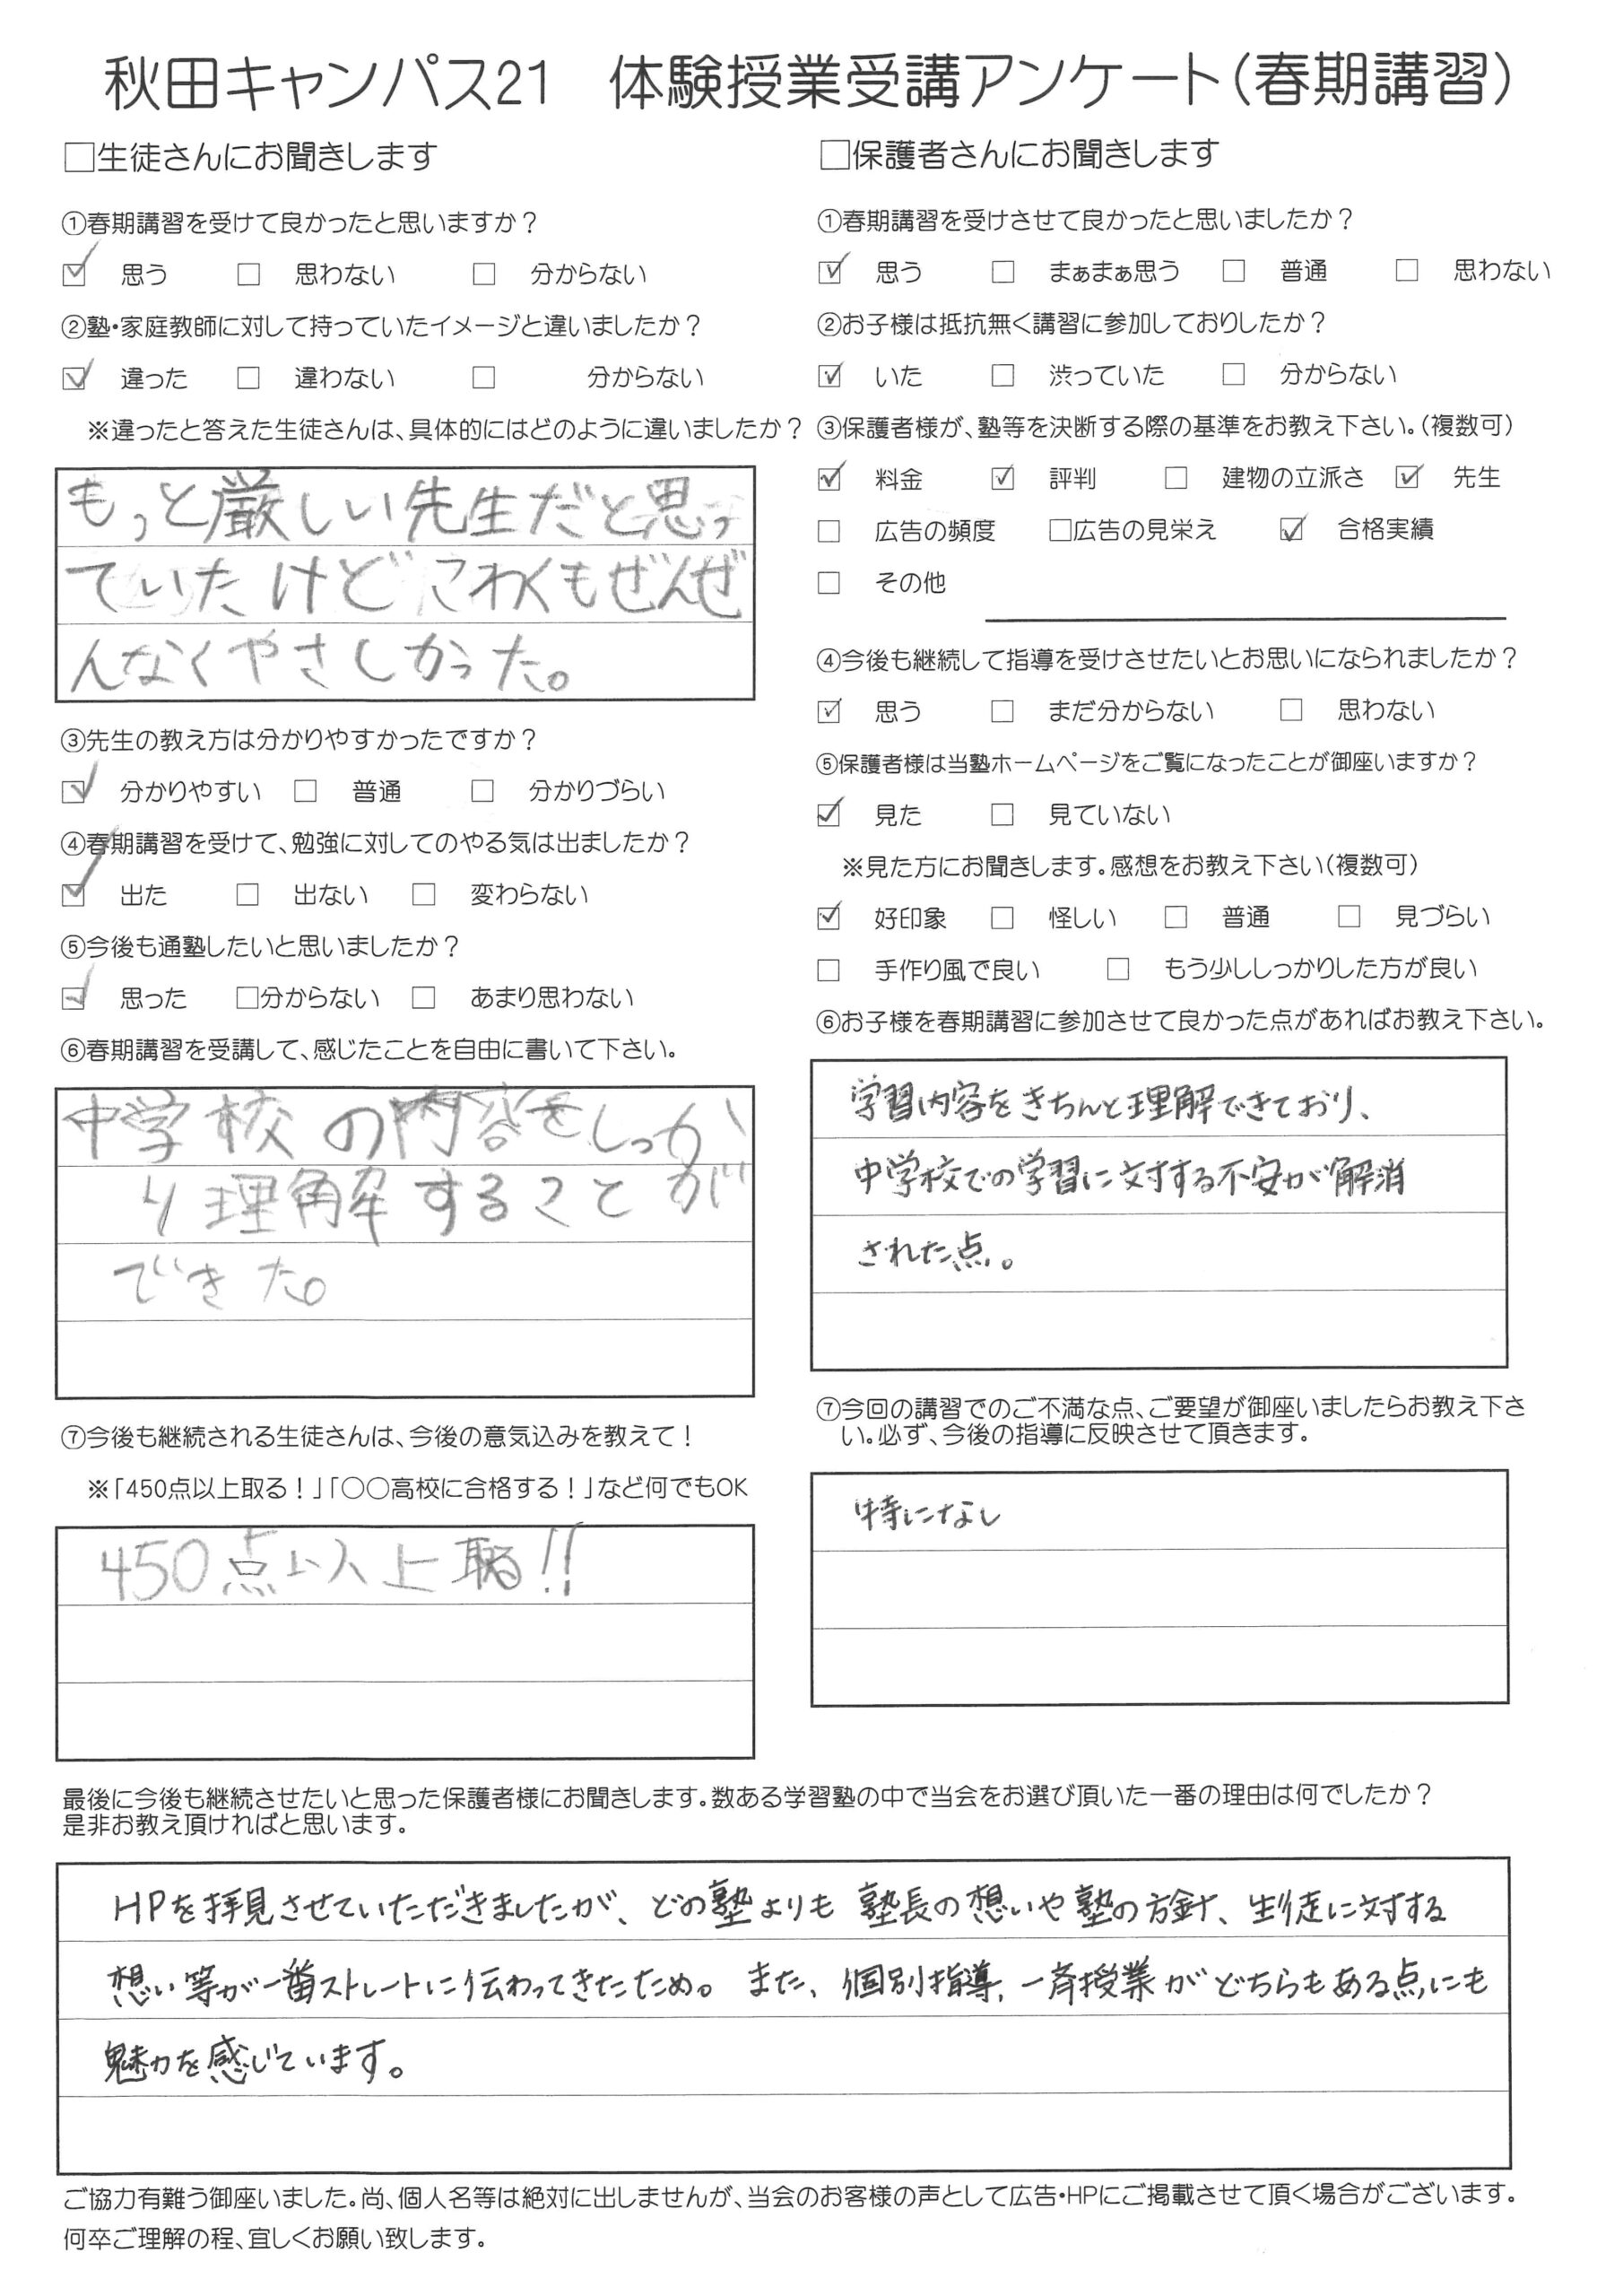 秋田キャンパス21　体験授業受講アンケート（春期講習）
□生徒さんにお聞きします
①春期講習を受けて良かったと思いますか？
☑ 思う □ 思わない □ 分からない
②塾・家庭教師に対して持っていたイメージと違いましたか？
☑ 違った □ 違わない □ 分からない
※違ったと答えた生徒さんは、具体的にはどのように違いましたか？
もっと厳しい先生だと思っ
ていたけどこわくもぜんぜ
んなくやさしかった。
③先生の教え方は分かりやすかったですか？
☑ 分かりやすい □ 普通 □ 分かりづらい
④春期講習を受けて、勉強に対してのやる気は出ましたか？
☑ 出た □ 出ない □ 変わらない
⑤今後も通塾したいと思いましたか？
☑ 思った □分からない □ あまり思わない
⑥春期講習を受講して、感じたことを自由に書いて下さい。
中学校の内容をしっか
り理解することが
できた。
⑦今後も継続される生徒さんは、今後の意気込みを教えて！
※「450点以上取る！」「○○高校に合格する！」など何でもOK
450点以上取る!!
□保護者さんにお聞きします
①春期講習を受けさせて良かったと思いましたか？
☑ 思う □ まぁまぁ思う □ 普通 □ 思わない
②お子様は抵抗無く講習に参加しておりしたか？
☑ いた □ 渋っていた □ 分からない
③保護者様が、塾等を決断する際の基準をお教え下さい。（複数可）
☑ 料金 ☑ 評判 □ 建物の立派さ ☑ 先生
□ 広告の頻度 □広告の見栄え ☑ 合格実績
□ その他
④今後も継続して指導を受けさせたいとお思いになられましたか？
☑ 思う □ まだ分からない □ 思わない
⑤保護者様は当塾ホームページをご覧になったことが御座いますか？
☑ 見た □ 見ていない
※見た方にお聞きします。感想をお教え下さい（複数可）
☑ 好印象 □ 怪しい □ 普通 □ 見づらい
□ 手作り風で良い □ もう少ししっかりした方が良い
⑥お子様を春期講習に参加させて良かった点があればお教え下さい。
学習内容をきちんと理解できており、
中学校での学習に対する不安が解消
された点。
⑦今回の講習でのご不満な点、ご要望が御座いましたらお教え下さ
い。必ず、今後の指導に反映させて頂きます。
特になし
最後に今後も継続させたいと思った保護者様にお聞きします。数ある学習塾の中で当会をお選び頂いた一番の理由は何でしたか？
是非お教え頂ければと思います。
HPを拝見させていただきましたが、どの塾よりも 塾長の想いや塾の方針、生徒に対する
想い等が一番ストレートに伝わってきたため。また、個別指導、一斉授業がどちらもある点にも
魅力を感じています。
ご協力有難う御座いました。尚、個人名等は絶対に出しませんが、当会のお客様の声として広告・HPにご掲載させて頂く場合がございます。
何卒ご理解の程、宜しくお願い致します。